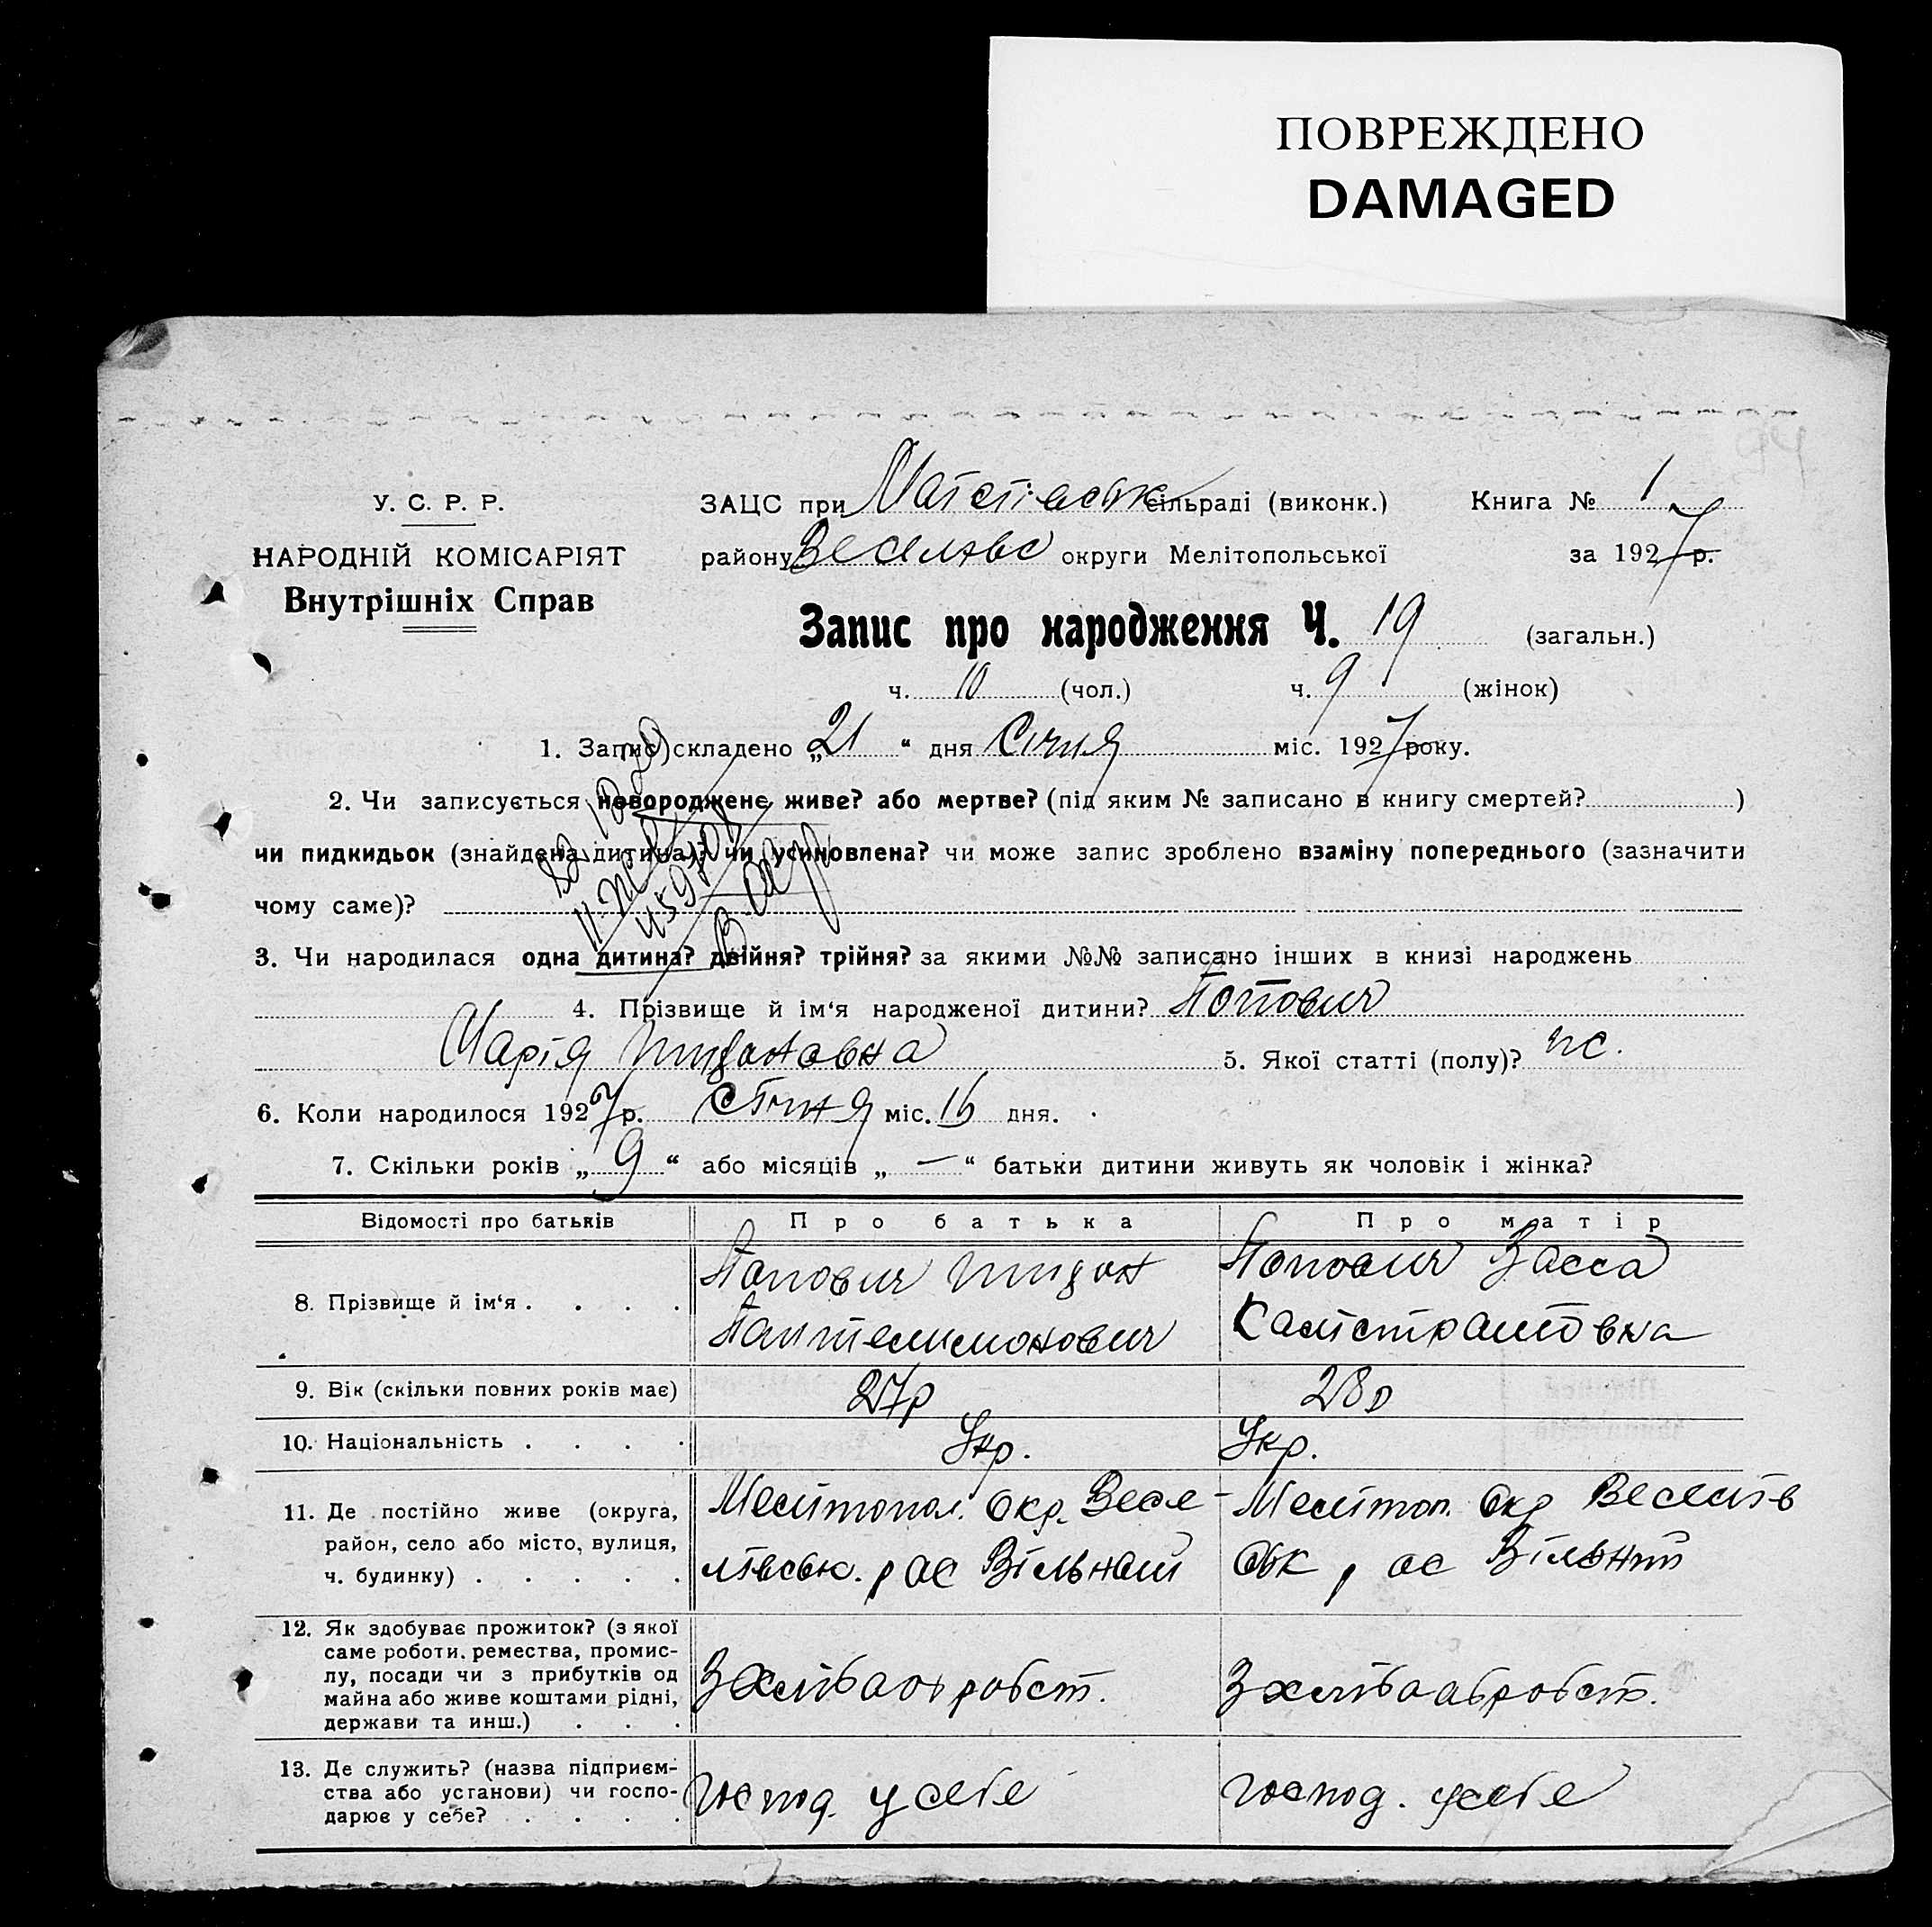 ПОВРЕЖДЕНО
DAMAGED
У. С. Р. Р.
НАРОДНІЙ КОМІСАРІЯТ
Внутрішніх Справ
ЗАЦС при сільраді (виконк.) Книга № 1
району округи Мелітопольської за 1927 р.
Запис про народження Ч. 19 (загальн.)
ч. 10 (чол.) ч. 9 (жінок)
1. Запис складено „21“ дня Січня міс. 1927 року.
2. Чи записується новороджене живе? або мертве? (під яким № записано в книгу смертей? )
чи пидкидьок (знайдена дитина)? чи усиновлена? чи може запис зроблено взаміну попереднього (зазначити
чому саме)?
3. Чи народилася одна дитина? двійня? трійня? за якими №№ записано інших в книзі народжень
4. Прізвище й ім‘я народженої дитини? Попович
Марія 5. Якої статті (полу)? ж.
6. Коли народилося 1927 р. Січня міс. 16 дня.
7. Скільки років „9“ або місяців „—“ батьки дитини живуть як чоловік і жінка?
Відомості про батьків Про батька Про матір
8. Прізвище й ім‘я . . . . Попович Попович Васса
Пантелимонович Калістратовна
9. Вік (скільки повних років має) 27р 28р
10. Національність . . . . Укр. Укр.
11. Де постійно живе (округа, Мелітопол. Окр. Весе- Мелітоп. Окр Веселів
район, село або місто, вулиця,
ч. будинку) . . . . . лівськ. р ас Вільний ськ р ас Вільний
12. Як здобуває прожиток? (з якої
саме роботи, ремества, промис-
лу, посади чи з прибутків од
майна або живе коштами рідні, З хлібаробст. З хлібаробст.
держави та инш.) . . .
13. Де служить? (назва підприєм-
ства або установи) чи госпо- господ. у себе господ. у себе
дарює у себе? . . . .